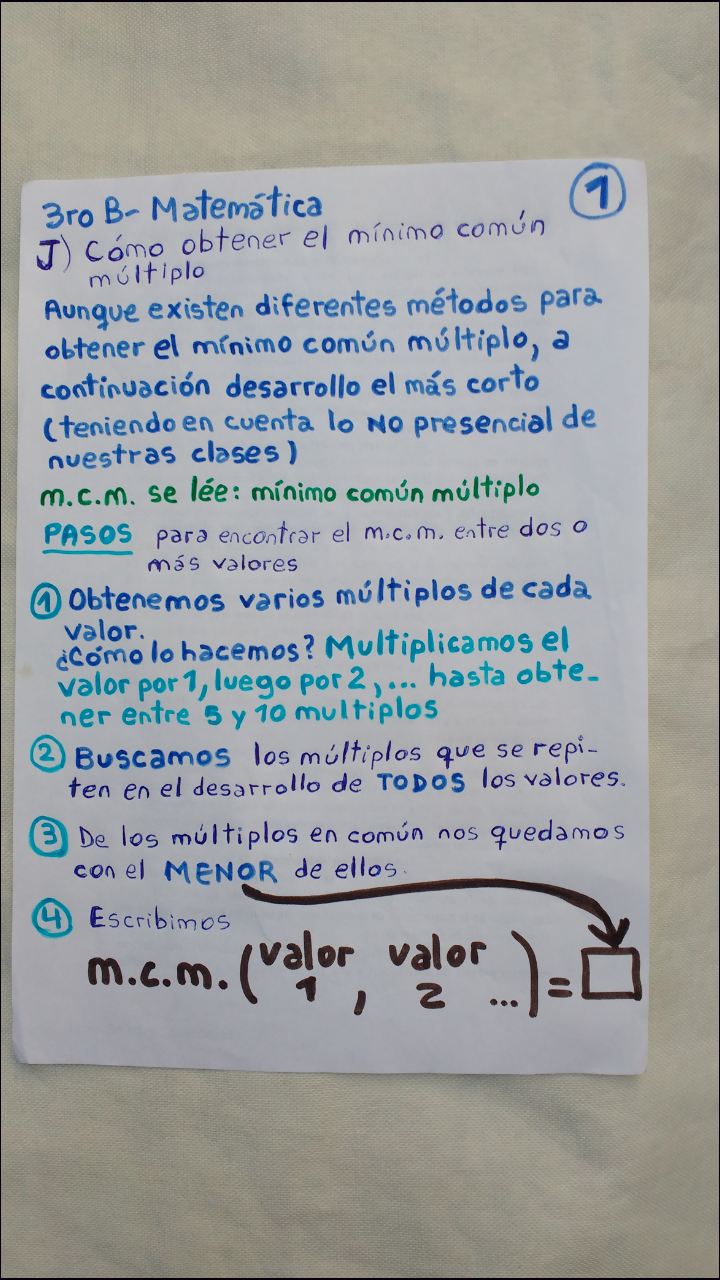 1
3ro B- Matemática
J) Cómo obtener el mínimo común
múltiplo
Aunque existen diferentes métodos para
obtener el mínimo común múltiplo, a
continuación desarrollo el más corto
(teniendo en cuenta lo NO presencial de
nuestras clases)
m.c.m. se lée: mínimo común múltiplo
PASOS para encontrar el m.c.m. entre dos o
más valores
1 Obtenemos varios múltiplos de cada
valor.
¿Cómo lo hacemos? Multiplicamos el
valor por 1, luego por 2, ... hasta obte-
ner entre 5 y 10 multiplos
2 Buscamos los múltiplos que se repi-
ten en el desarrollo de TODOS los valores.
3 De los múltiplos en común nos quedamos
con el MENOR de ellos.
4 Escribimos
m.c.m. (valor 1, valor 2 ...) =